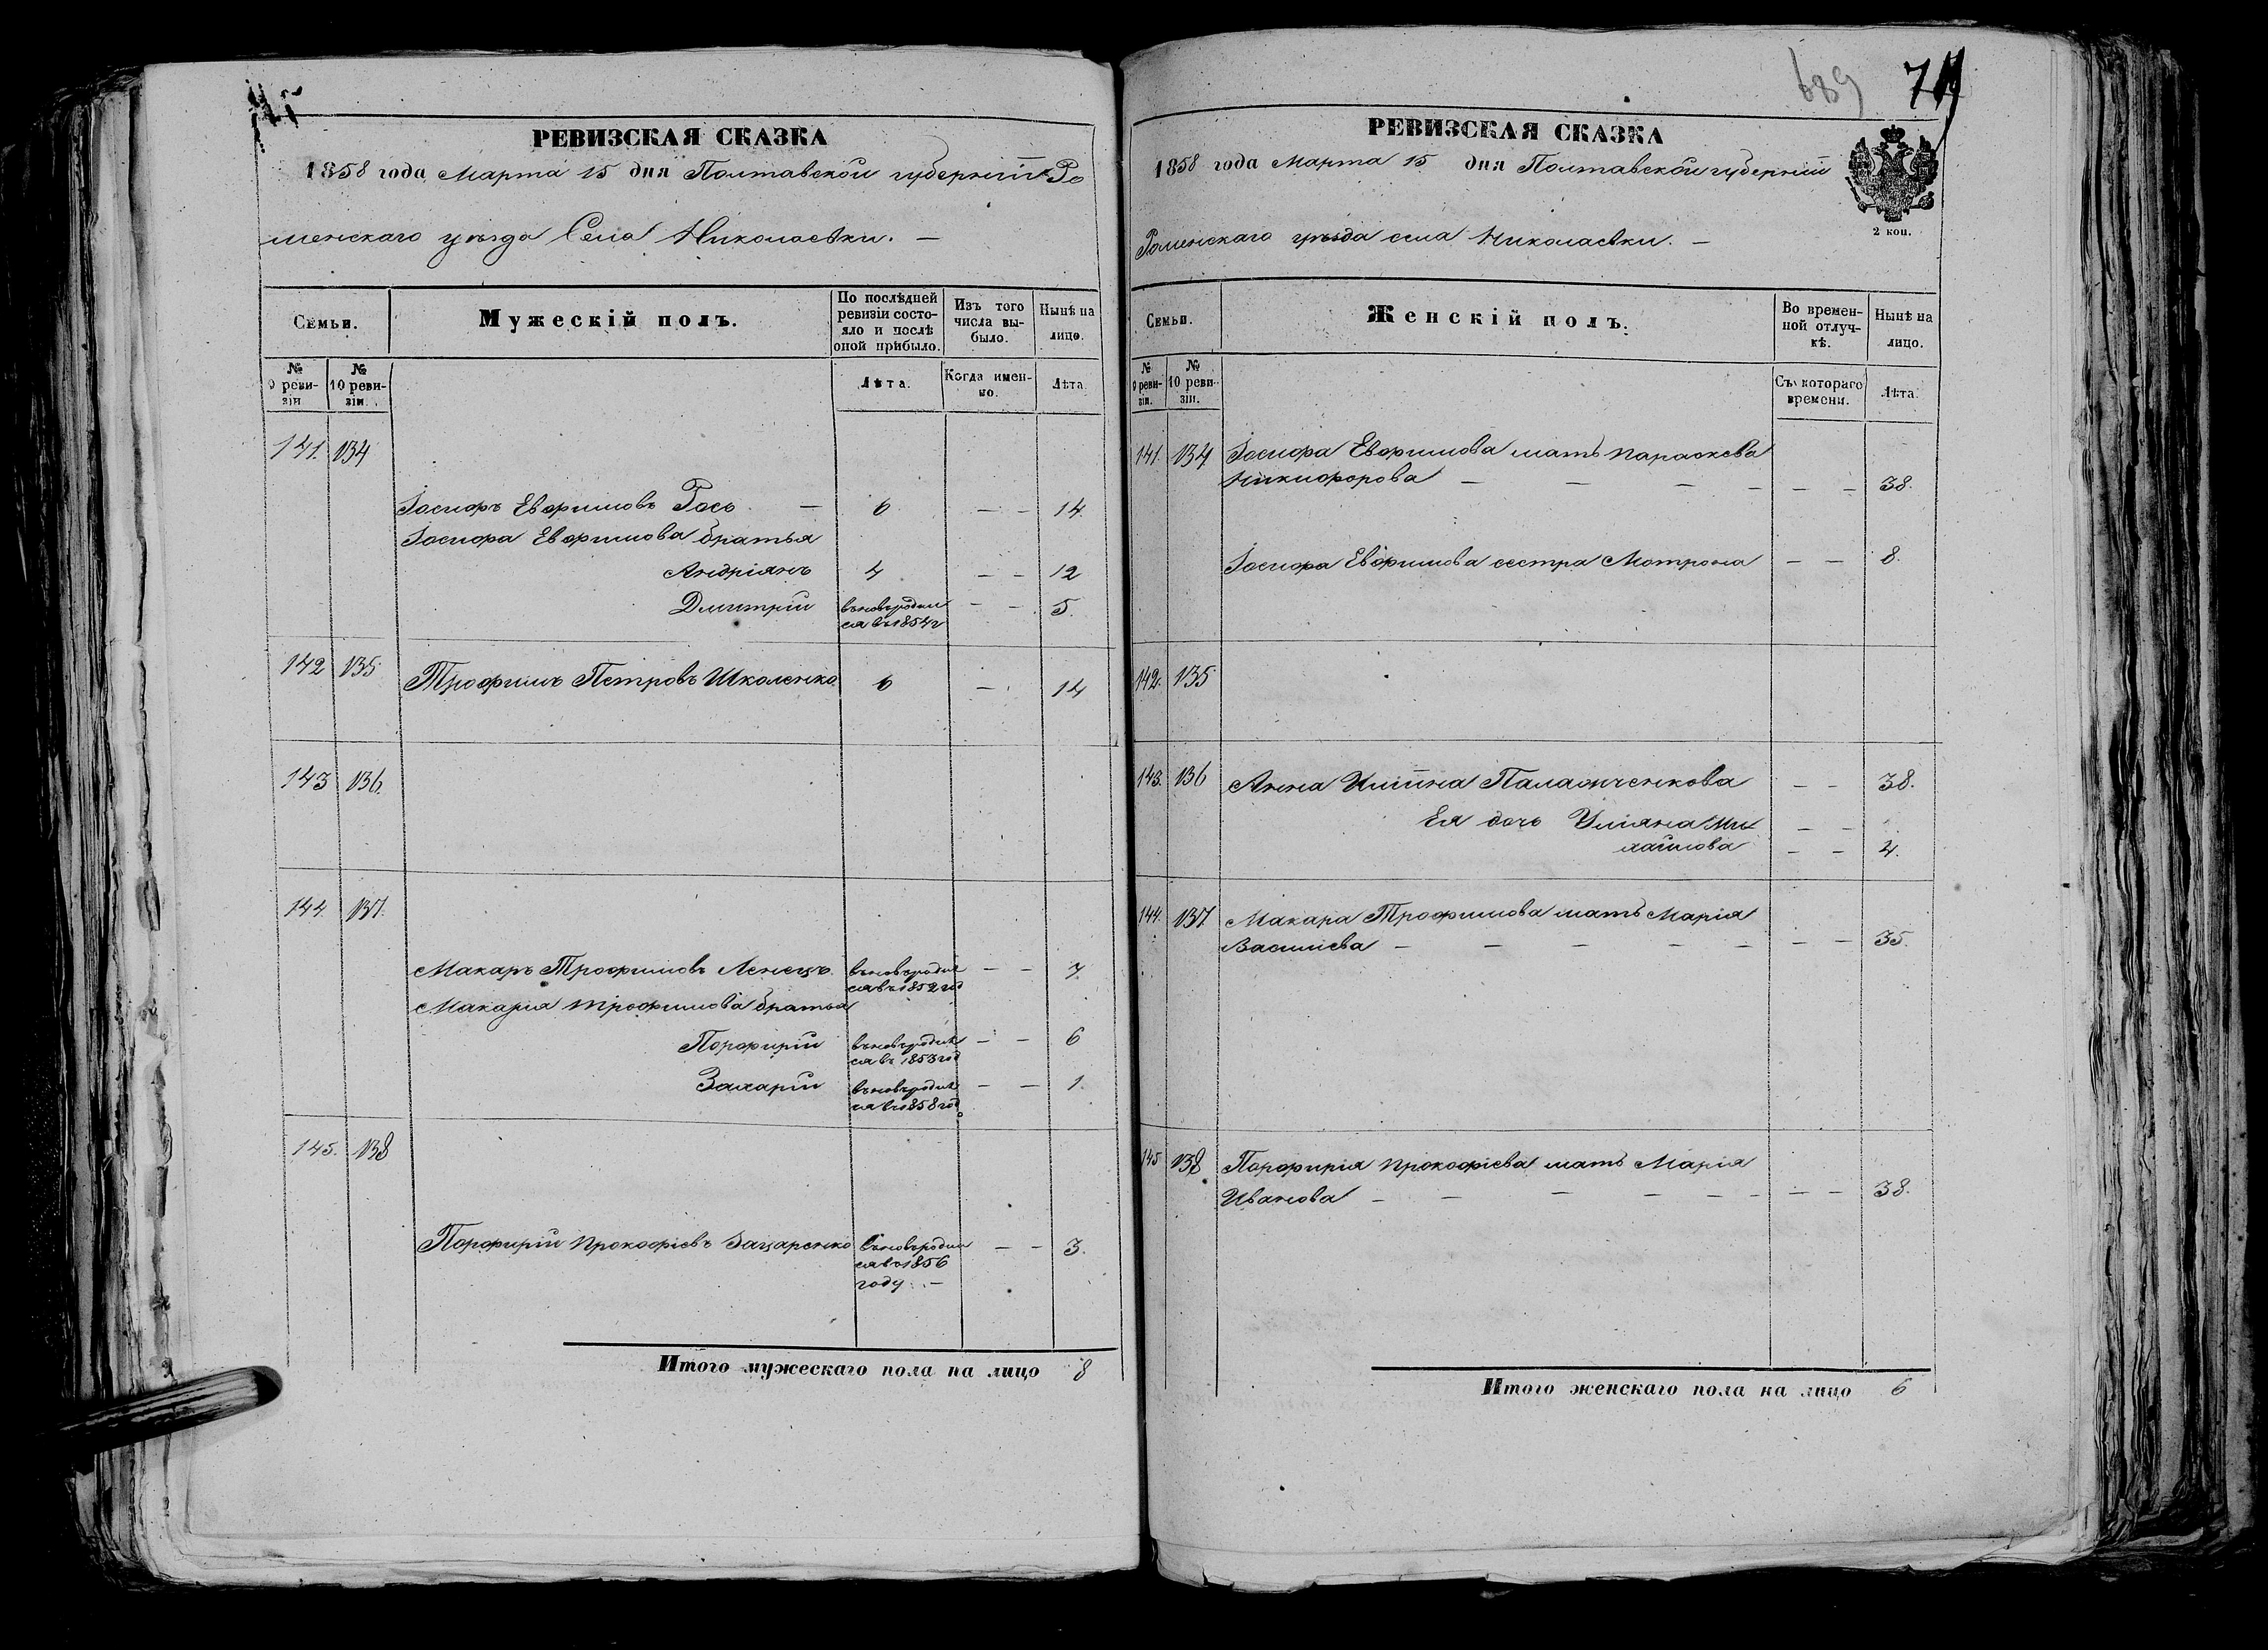 РЕВИЗСКАЯ СКАЗКА
1858 года Марта 15 дня Полтавской губерніи Ро
менскаго уѣзда Села Николаевки. —
Семьи.
Мужескій полъ.
По послѣдней
ревизіи состо-
яло и послѣ
оной прибыло.
Изъ того
числа вы-
было.
Нынѣ на
лицо.
№
9 реви-
зіи
№
10 реви-
зіи.
Лѣта.
Когда имен-
но.
Лѣта.
141. 134
Іосифъ Евфимовъ Рось — 6 — — 14.
Іосифа Евфимова братья
Андріянъ 4 — — 12
Дмитрій вновьродил — — 5.
ся въ 1854 г
142 135 Трофимъ Петровъ Школенко 6 — 14
143 136.
144. 137.
Макаръ Трофимовъ Ленецъ. вновьродил — — 7.
ся въ 1852 год
Макария Трофимова братья
Порфирій вновьродил — — 6
ся въ 1853 год
Захарій вновьродил — — 1.
ся въ 1858 год
145. 138
Порфирій Прокофіевъ Захаренко вновьродил — — 3.
ся въ 1856
году. —
Итого мужескаго пола на лицо 8
689 711
РЕВИЗСКАЯ СКАЗКА
1858 года Марта 15 дня Полтавской губерніи
Роменскаго уѣзда села Николаевки. —
2 коп.
Семьи.
Женскій полъ.
Во времен-
ной отлуч-
кѣ.
Нынѣ на
лицо.
№
9 реви-
зіи.
№
10 реви-
зіи.
Съ котораго
времени.
Лѣта.
141. 134. Іосифа Евфимова мать Параскева
Никифорова — — — — — — 38.
Іосифа Евфимова сестра Мотрона — — 8.
142. 135
143. 136 Анна Ильина Паламаченкова — — 38.
Ея дочь Уліяна Ми — —
хайлова — — 4.
144. 137. Макара Трофимова мать Марія
Васильева — — — — — — — 35.
145 138 Порфирія Прокофіева мать Марія
Иванова — — — — — — — — 38.
Итого женскаго пола на лицо 6